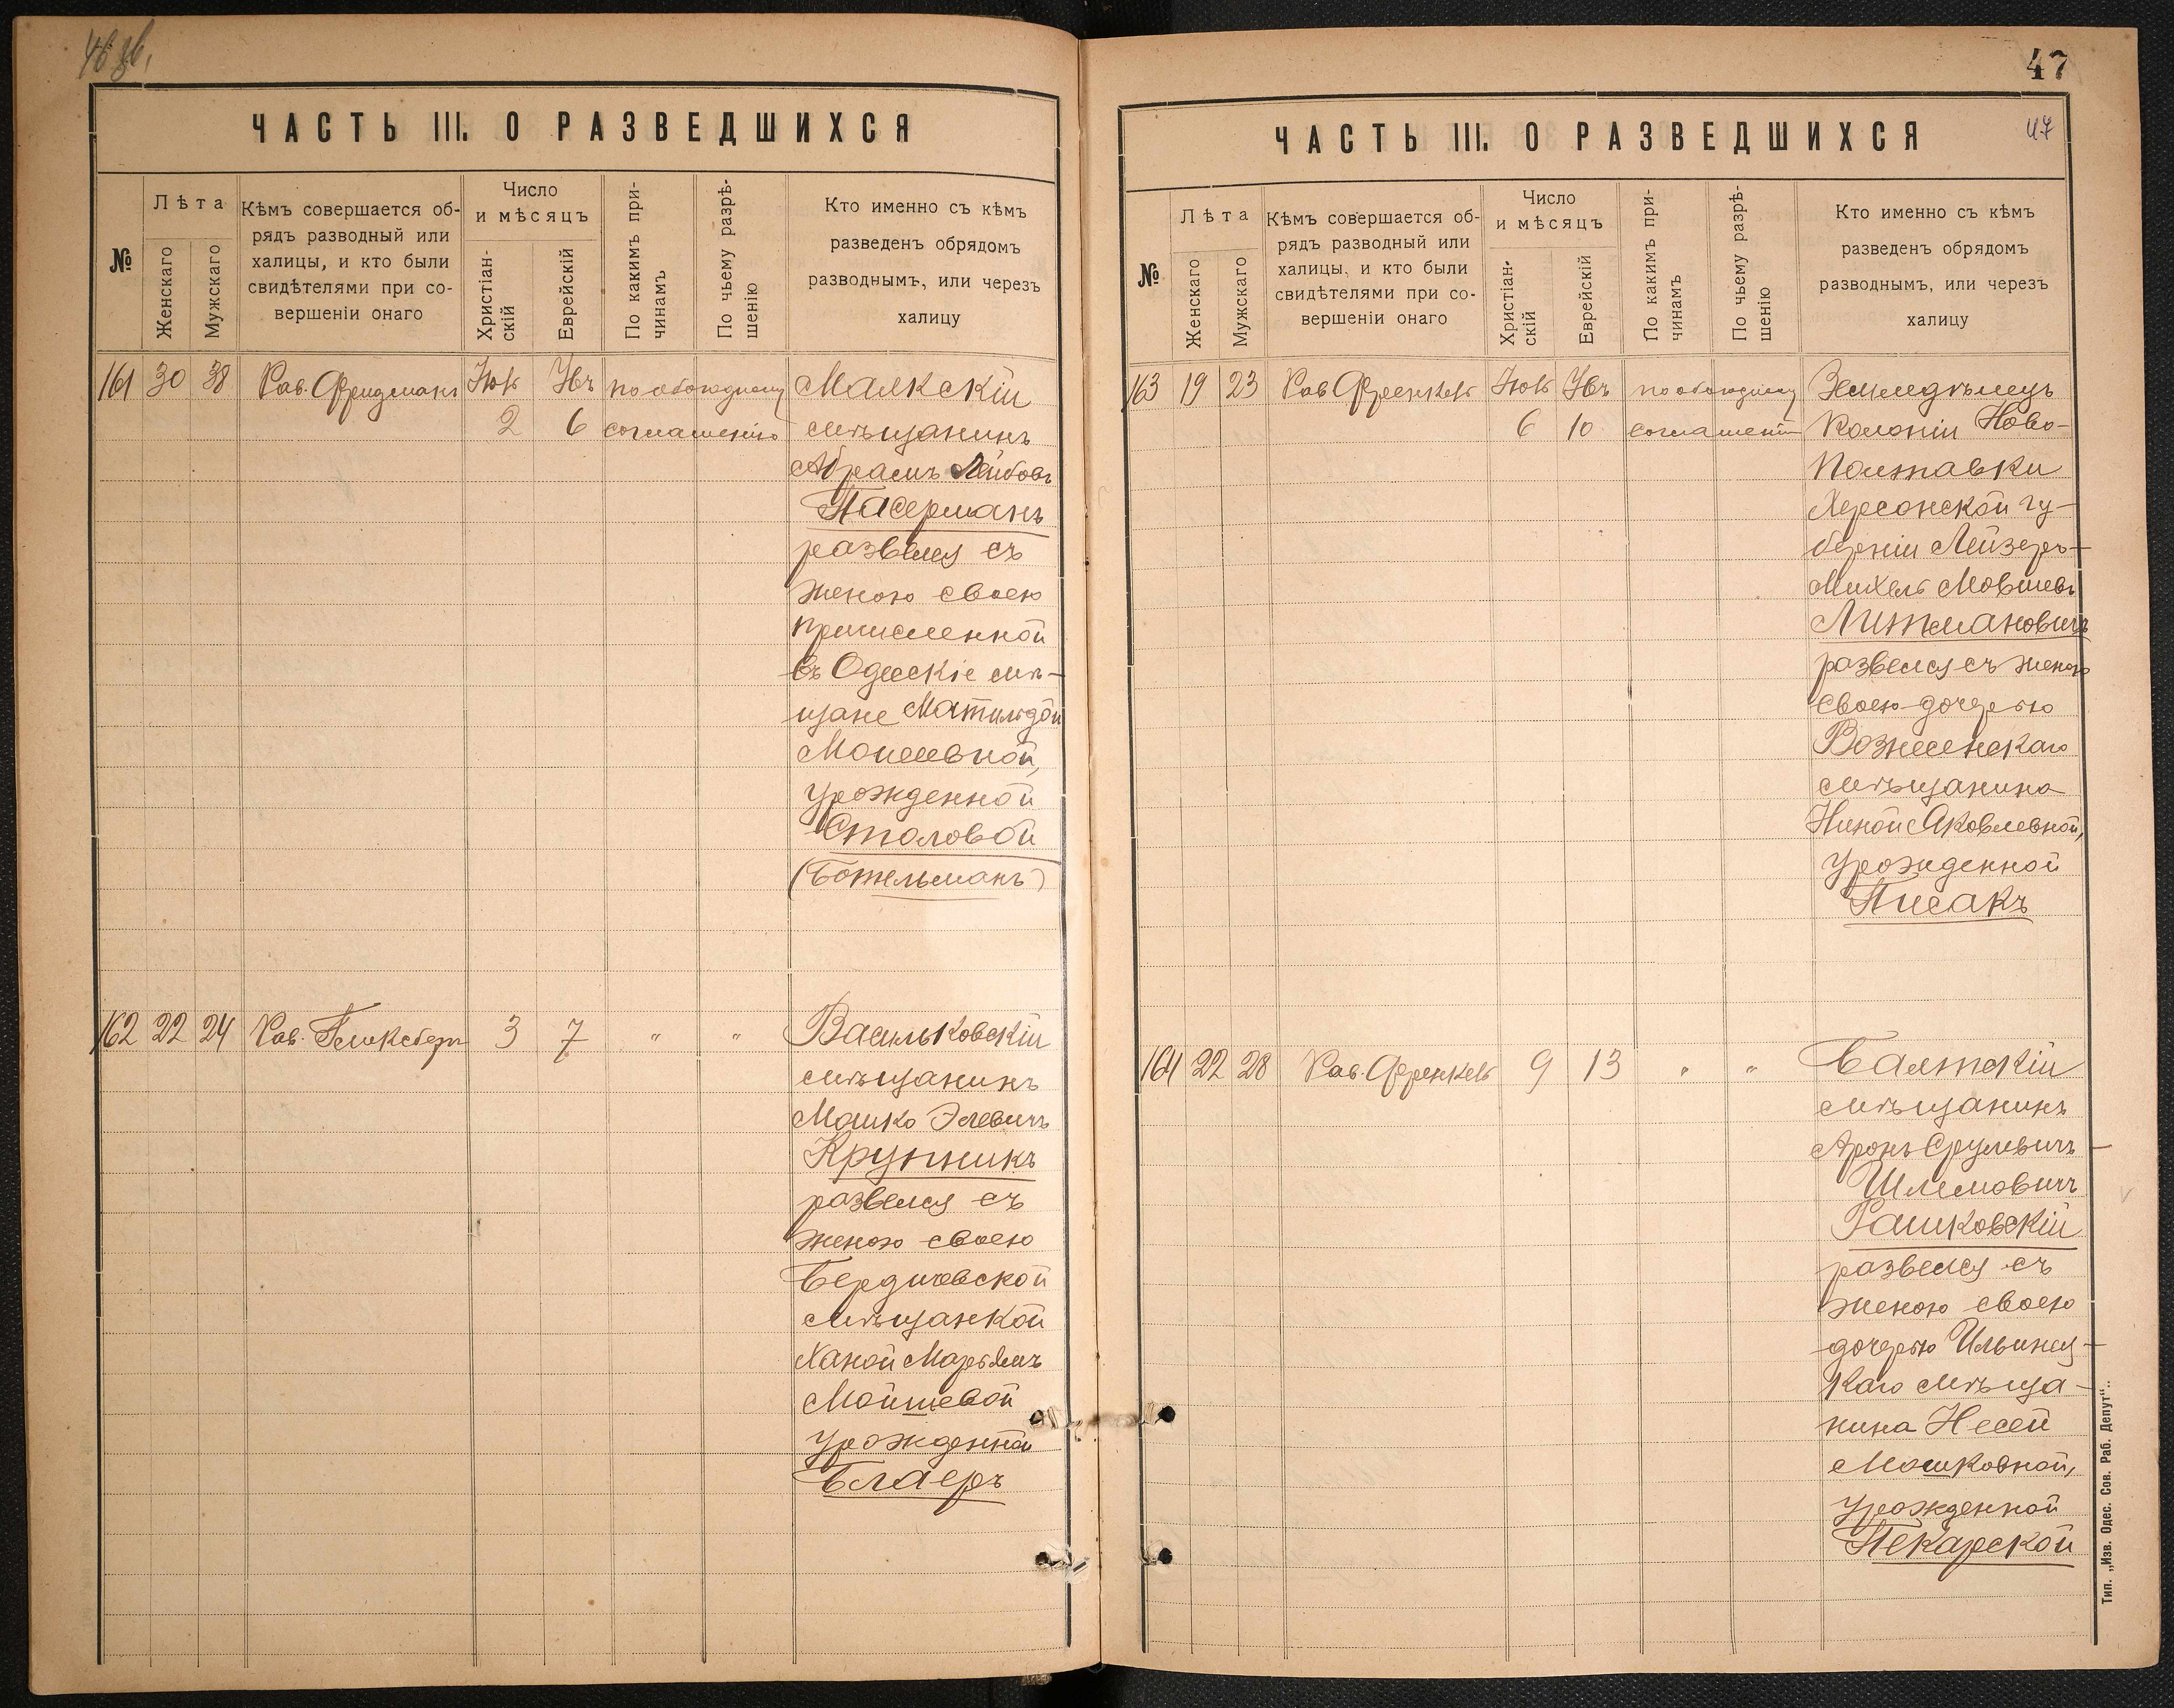 46 зв.
ЧАСТЬ III. О РАЗВЕДШИХСЯ
№
Лѣта
Женскаго
Мужскаго
Кѣмъ совершается об-
рядъ разводный или
халицы, и кто были
свидѣтелями при со-
вершеніи онаго
Число
и мѣсяцъ
Христіан-
скій
Еврейскій
По какимъ при-
чинамъ
По чьему разрѣ-
шенію
Кто именно съ кѣмъ
разведенъ обрядомъ
разводнымъ, или черезъ
халицу
161 30 38 Рав. Фридманъ
2 6
по обоюдному
соглашенію
мѣщанинъ
Абрамъ Лейбовъ
Пасерманъ
развелся съ
женою своею
причисленной
въ Одесскіе мѣ-
щане Матильдой
Моисеевной,
урожденной
Столовой
(Божельманъ)
162 22 24 Рав. 3 7 " "
Васильковскій
мѣщанинъ
Мошко Элевичъ
Крупникъ
развелся съ
женою своею
Бердичевской
мѣщанкой
Ханой Марьямъ
Мойшевой
урожденной
Блаеръ
47
47
ЧАСТЬ III. О РАЗВЕДШИХСЯ
№
Лѣта
Женскаго
Мужскаго
Кѣмъ совершается об-
рядъ разводный или
халицы, и кто были
свидѣтелями при со-
вершеніи онаго
Число
и мѣсяцъ
Христіан-
скій
Еврейскій
По какимъ при-
чинамъ
По чьему разрѣ-
шенію
Кто именно съ кѣмъ
разведенъ обрядомъ
разводнымъ, или черезъ
халицу
163 19 23 Рав Френкель
6 10
по обоюдному
соглашенію
Земледѣлецъ
Колоніи Ново-
Полтавки
Херсонской гу-
берніи Лейзеръ-
Михель Мовшевъ
Литмановичъ
развелся съ женою
своею дочерью
Вознесенскаго
мѣщанина
Ниной Яковлевной,
урожденной
Писакъ
164 22 28 Рав. Френкель 9 13 " "
Балтскій
мѣщанинъ
Аронъ Срулевичъ-
Шлемовичъ
Рашковскій
развелся съ
женою своею
дочерью Ильинец-
каго мѣща-
нина Несей
Мошковной,
урожденной
Пекарской
Тип. „Изв. Одес. Сов. Раб. Депут“.